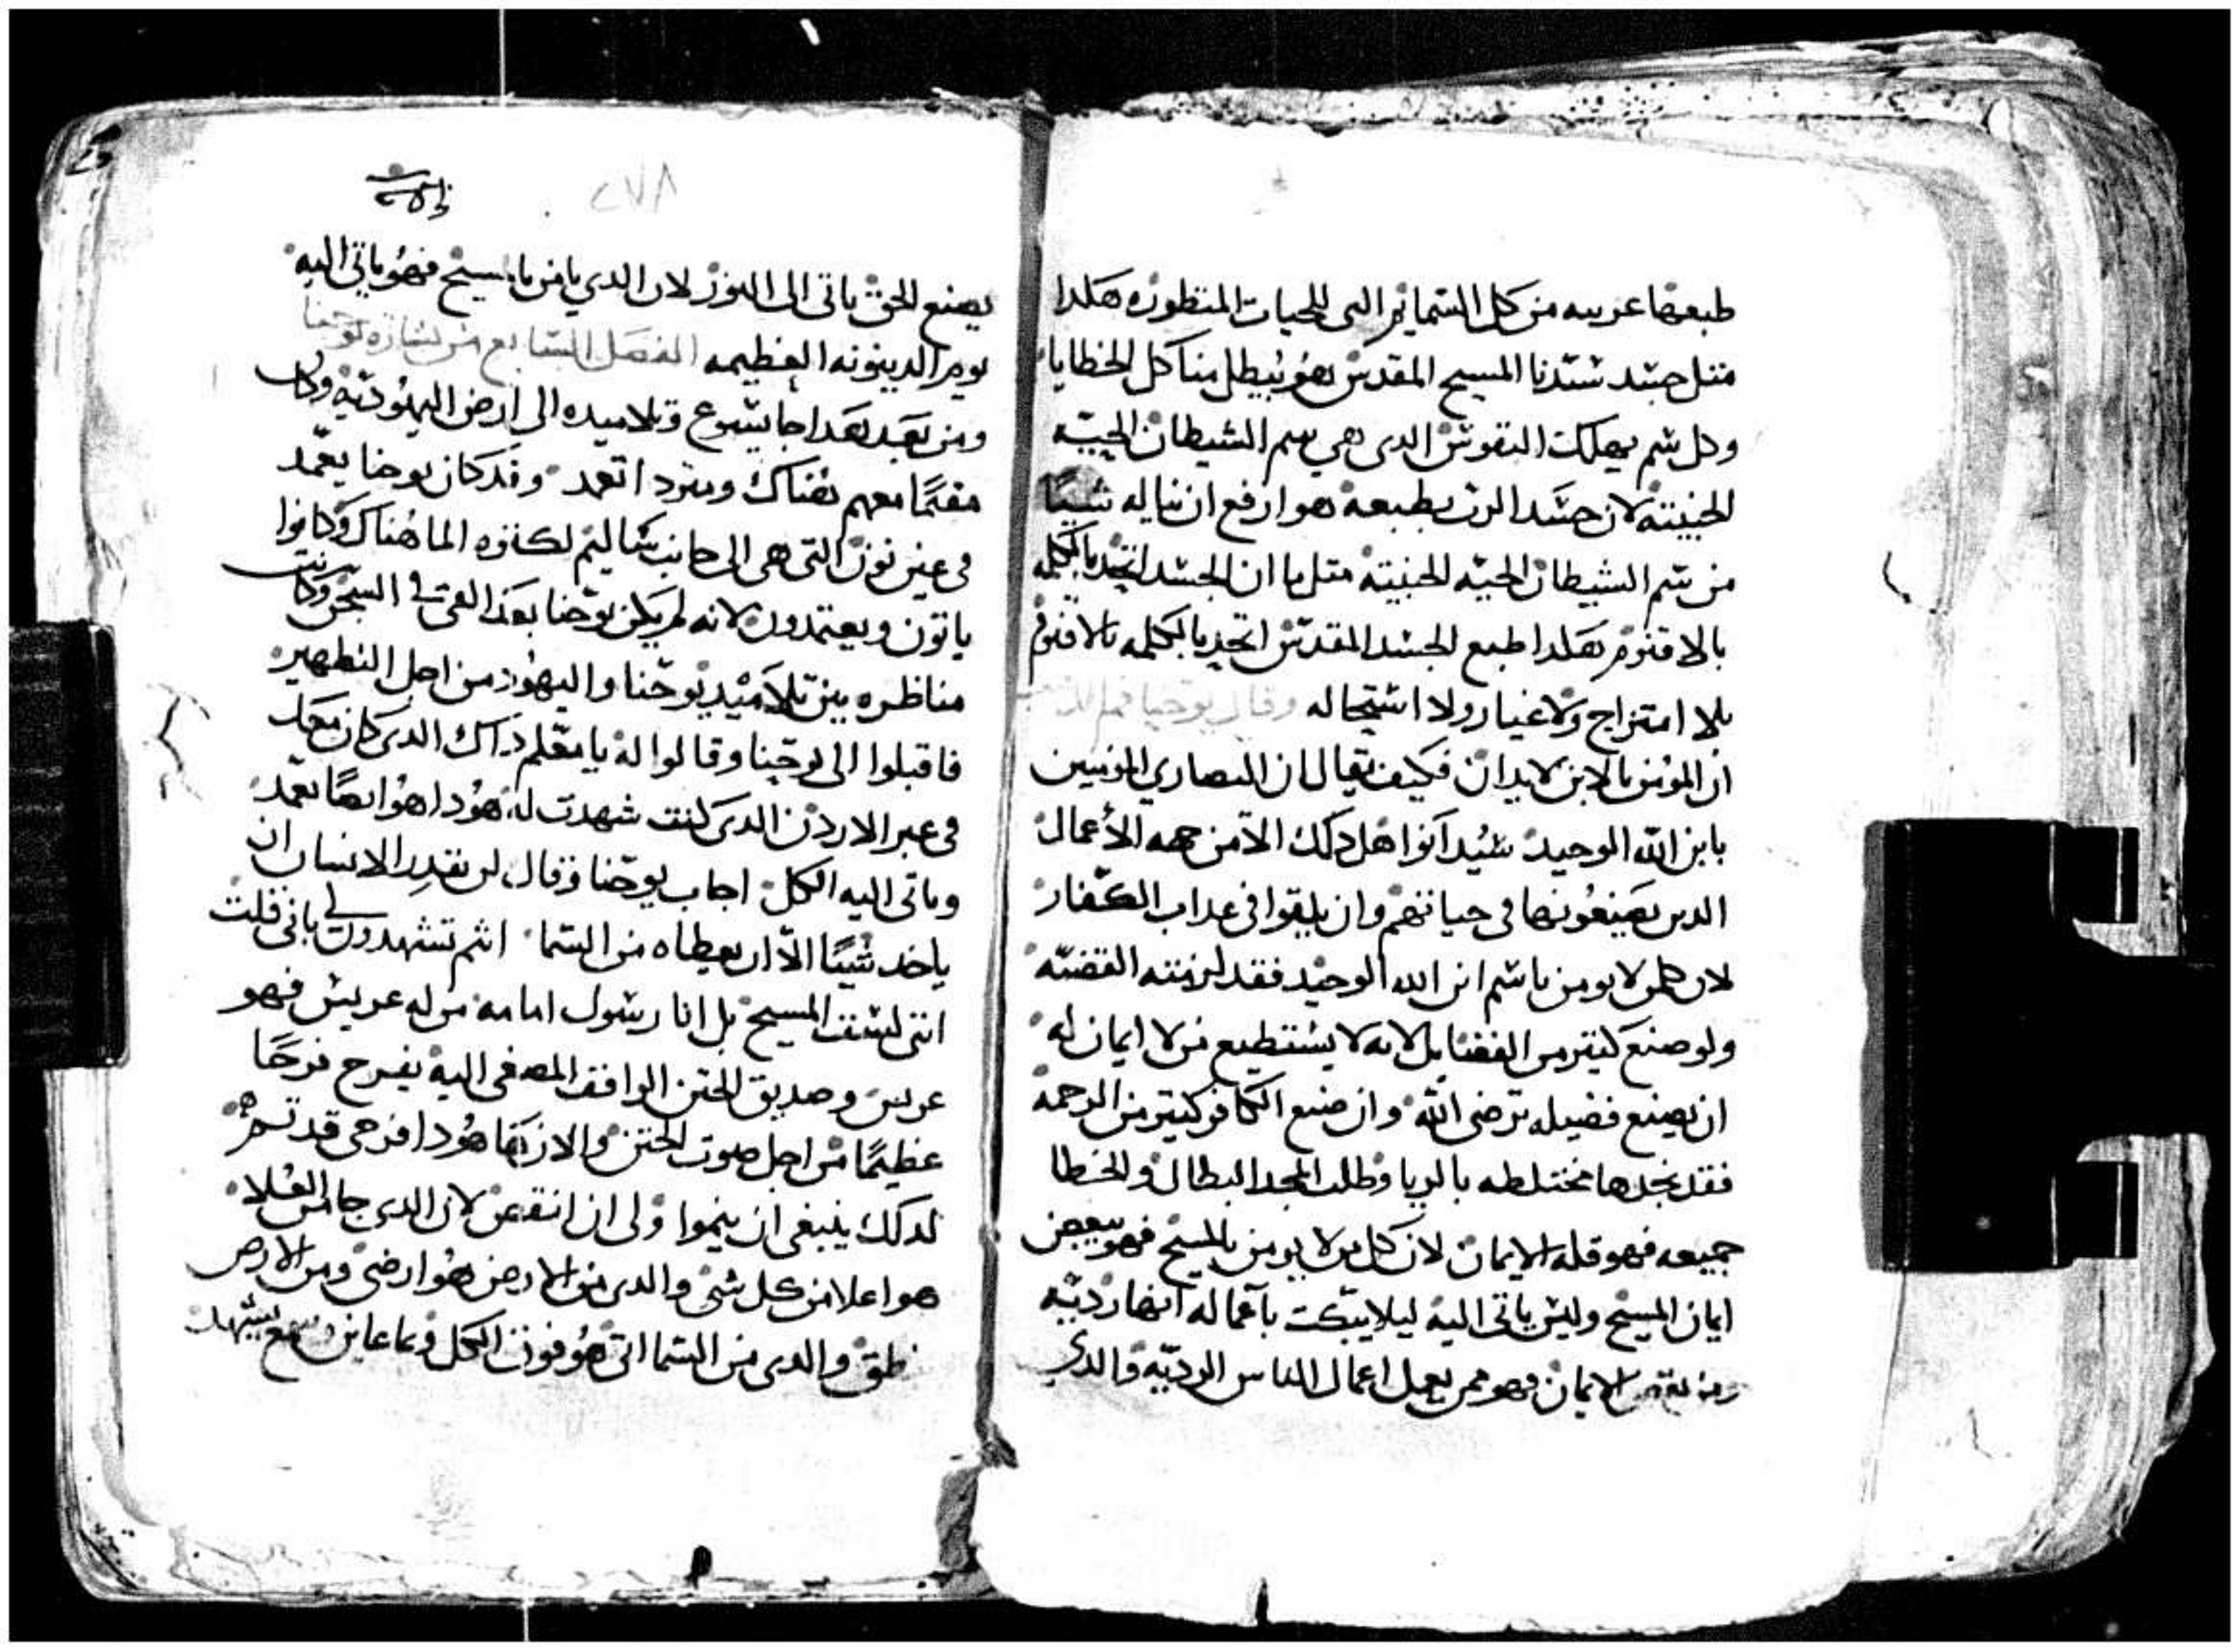 طبعها عربيه من كل السمايم التى للحيات المنظوره هكدا
متل جسد سيدنا المسيح المقدس هو يبطل منا كل الخطايا
وكل سم يهلك النفوس الدى هي سم الشيطان الحيه
الخبيته لان جسد الرب بطبعه هو ارفع ان يناله شيا
من سم الشيطان الحيه الخبيته متل ما ان الجسد اتحد بالكلمه
بالاقنوم هكدا طبع الجسد المقدس اتحد بالكلمه بالاقنوم
بلا امتزاج ولا غيار ولا استحاله وقال يوحنا فم الدهب
ان المومن بالابن لا يدان فكيف يقال ان النصاري المومنين
بابن الله الوحيد سيدانوا هل دلك الا من جهه الأعمال
الدين يصنعونها فى حياتهم وان يلقوا فى عداب الكفار
لان كلمن لا يومن باسم ابن الله الوحيد فقد لزمته القضيه
ولو صنع كتير من الفضايل لانه لا يستطيع من لا ايمان له
ان يصنع فضيله ترضى الله وان صنع الكافر كتير من الرحمه
فقد نجدها مختلطه بالريا وطلب المجد البطال والخطا
جميعه فهو قله الايمان لان كل من لا يومن بالمسيح فهو يبغض
ايمان المسيح وليس ياتى اليه ليلا يبكت بآعماله آنها رديه
ومن الايمان فهو ممن يعمل اعمال الناس الرديه والدي
٢٧٨
يصنع الحق ياتى الى النور لان الدي يامن بالمسيح فهو ياتى اليه
يوم الدينونه العظيمه الفصل السابع من بشارة يوحنا
ومن بعد هدا جا يسوع وتلاميده الى ارض اليهوديه وكان
مقيمًا معهم هناك ويعمد وقد كان يوحنا يعمد
فى عين نون التى هى الى جانب ساليم لكتره الما هناك وكانوا
ياتون ويعتمدون لانه لم يكن يوحنا بعد القى فى السجن وكانت
مناظره بين تلاميد يوحنا واليهود من اجل التطهير
فاقبلوا الى يوحنا وقالوا له يا معلم داك الدى كان معك
فى عبر الاردن الدى كنت شهدت له هودا هو ايضًا يعمد
وياتى اليه الكل اجاب يوحنا وقال لن يقدر الانسان ان
ياخد شيًا الا ان يعطاه من السما انتم تشهدون لى بانى قلت
اننى لست المسيح بل انا رسول امامه من له عريس فهو
عريس وصديق الختن الواقف المصغى اليه يفرح فرحًا
عظيمًا من اجل صوت الختن والان فها هودا فرحى قد تم
لدلك ينبغى ان ينموا ولى ان انقص لان الدى جا من العلا
هو اعلا من كل شى والدى من الارض هو ارضى ومن الارض
نطق والدى من السما اتى هو فوق الكل وبما عاين وسمع يشهد